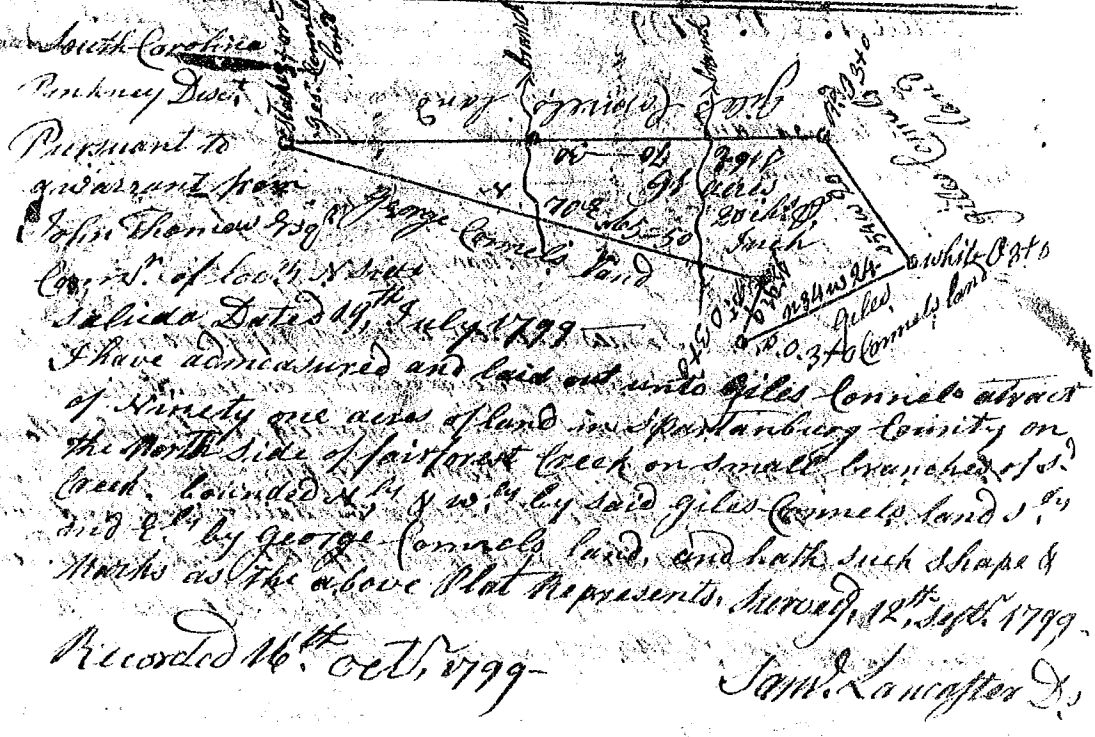 South Carolina
Pinkney Dis.t
Pursuant to
a warrant from
John Thomas Esq.r
Com.r of loc.n N Side
Saluda Dated 19th July 1799
I have admeasured and laid out unto Giles Connels atract
of Ninety one acres of land in Spartanburg County on
the North side of fairforest Creek on small branches of s.d
Creek. bounded N.ly & N w.ly by said Giles Connels land s.ly
and E.ly by George Connels land, and hath such shape &
Marks as the above Plat Represents, Survey.d 12th Sept.r 1799
Recorded 16th Oct.r 1799
Sam.l Lancaster D.s
Geo.s Connels
land
branch
branch
Giles Connels land
Giles Connels land
70
91 acres
20
Inch
George Connels land
N 65 50
S 54 W 20
N 34 W 24
white O 3+0
Giles
Connels land